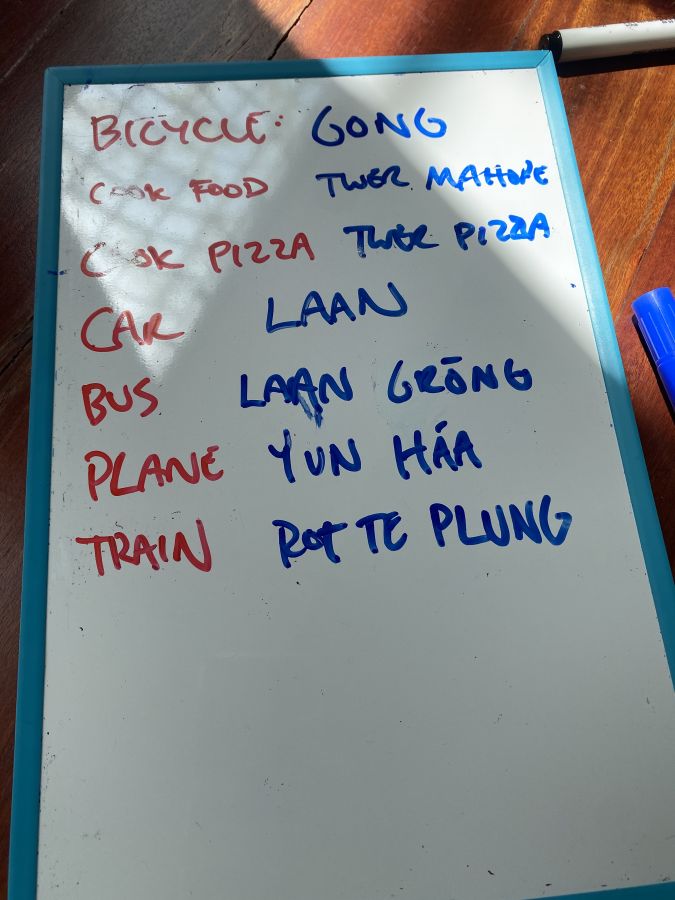 BICYCLE: GONG
COOK FOOD TWER MAHOPE
COOK PIZZA TWER PIZZA
CAR LAAN
BUS LAAN GRŌNG
PLANE YUN HÁA
TRAIN ROT TE PLUNG